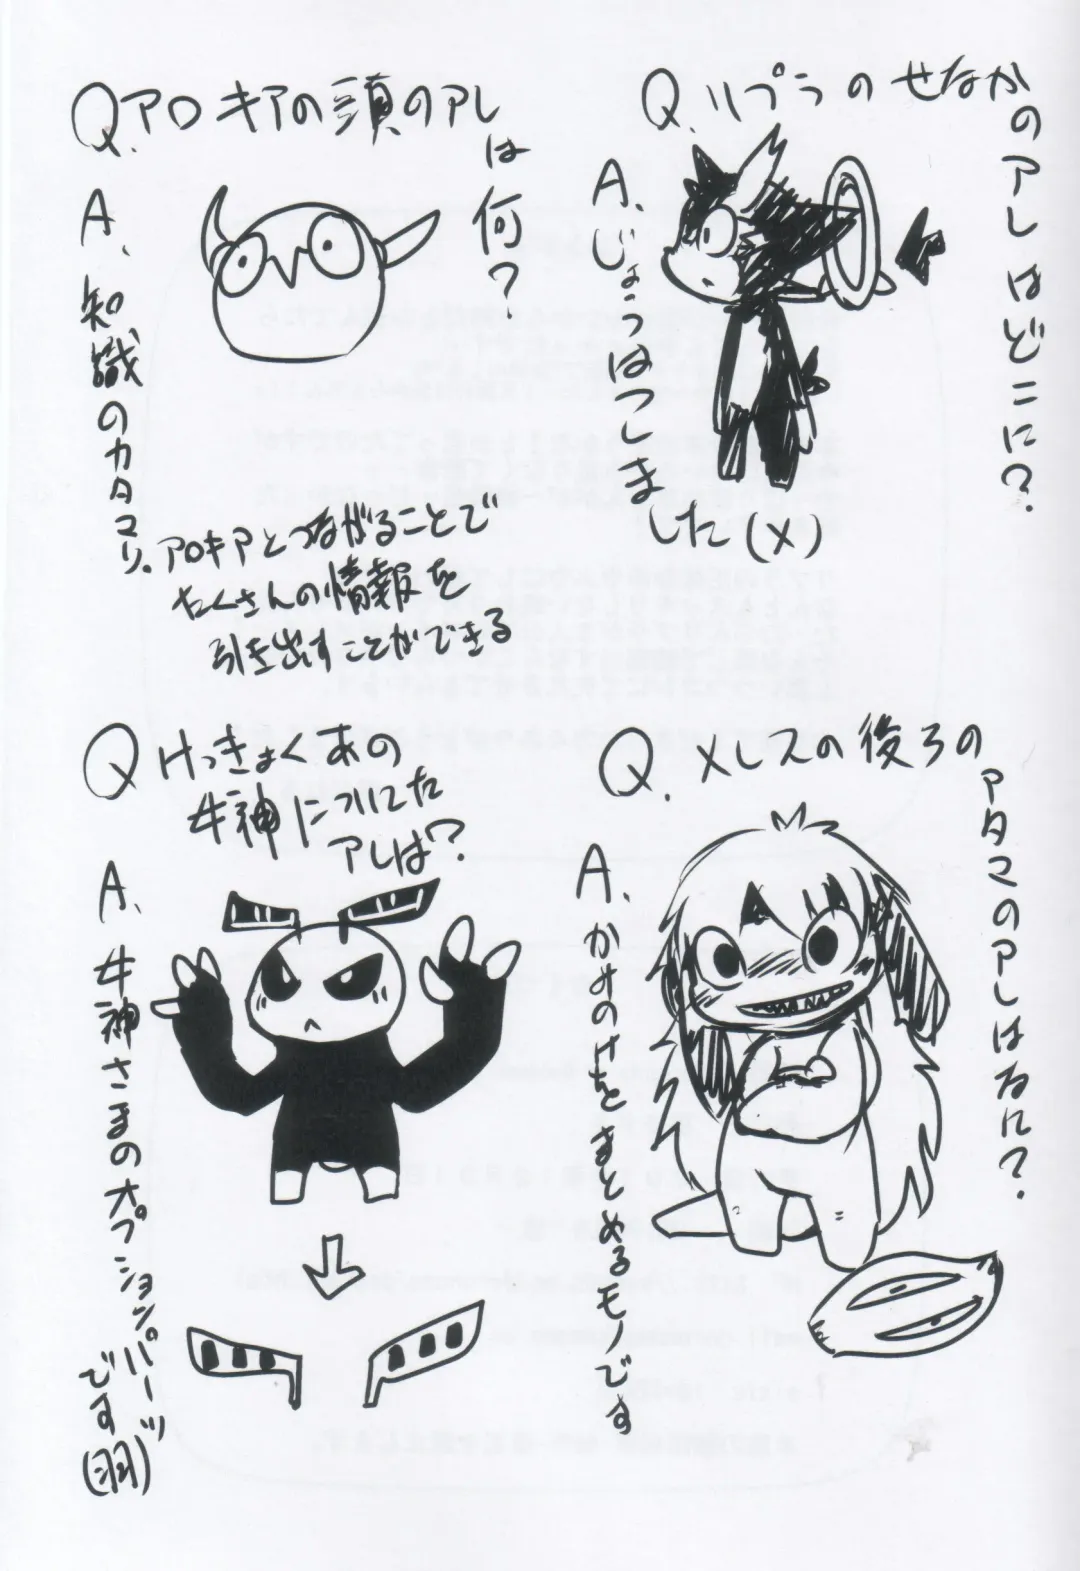 Q.リプラのせなか
のアレはどこに?
A.じょうはつしま
した(メ)
Q.アロキアの頭のアレ
は何?
A、知識のカタマリ。
アロキアとつながることで
たくさんの情報を
引き出すことができる
Q.メレスの後ろの
アタマのアレはなに?
A、かみのけをまとめるモノです
Qけっきょくあの
牛神についてた
アレは?
A、牛神さまのオプションパーツ
です(羽)